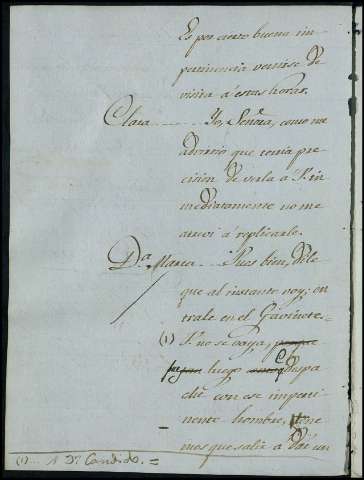 Es por cierto buena im
pertinencia venirse de
visita á estas horas.
Clara ...... Yo, Señora, como me
advirtió que tenia pre
cision de verla á V. in
mediatamente no me
atreví á replicarle.
D.ª Marta... Pues bien, dile
que al instante voy; en
trale en el Gavinete.=
(1) V. no se vaya,
luego despa
che con ese imperti
nente hombre,
mos que salir á dar un
(1)... A D.ⁿ Candido. =